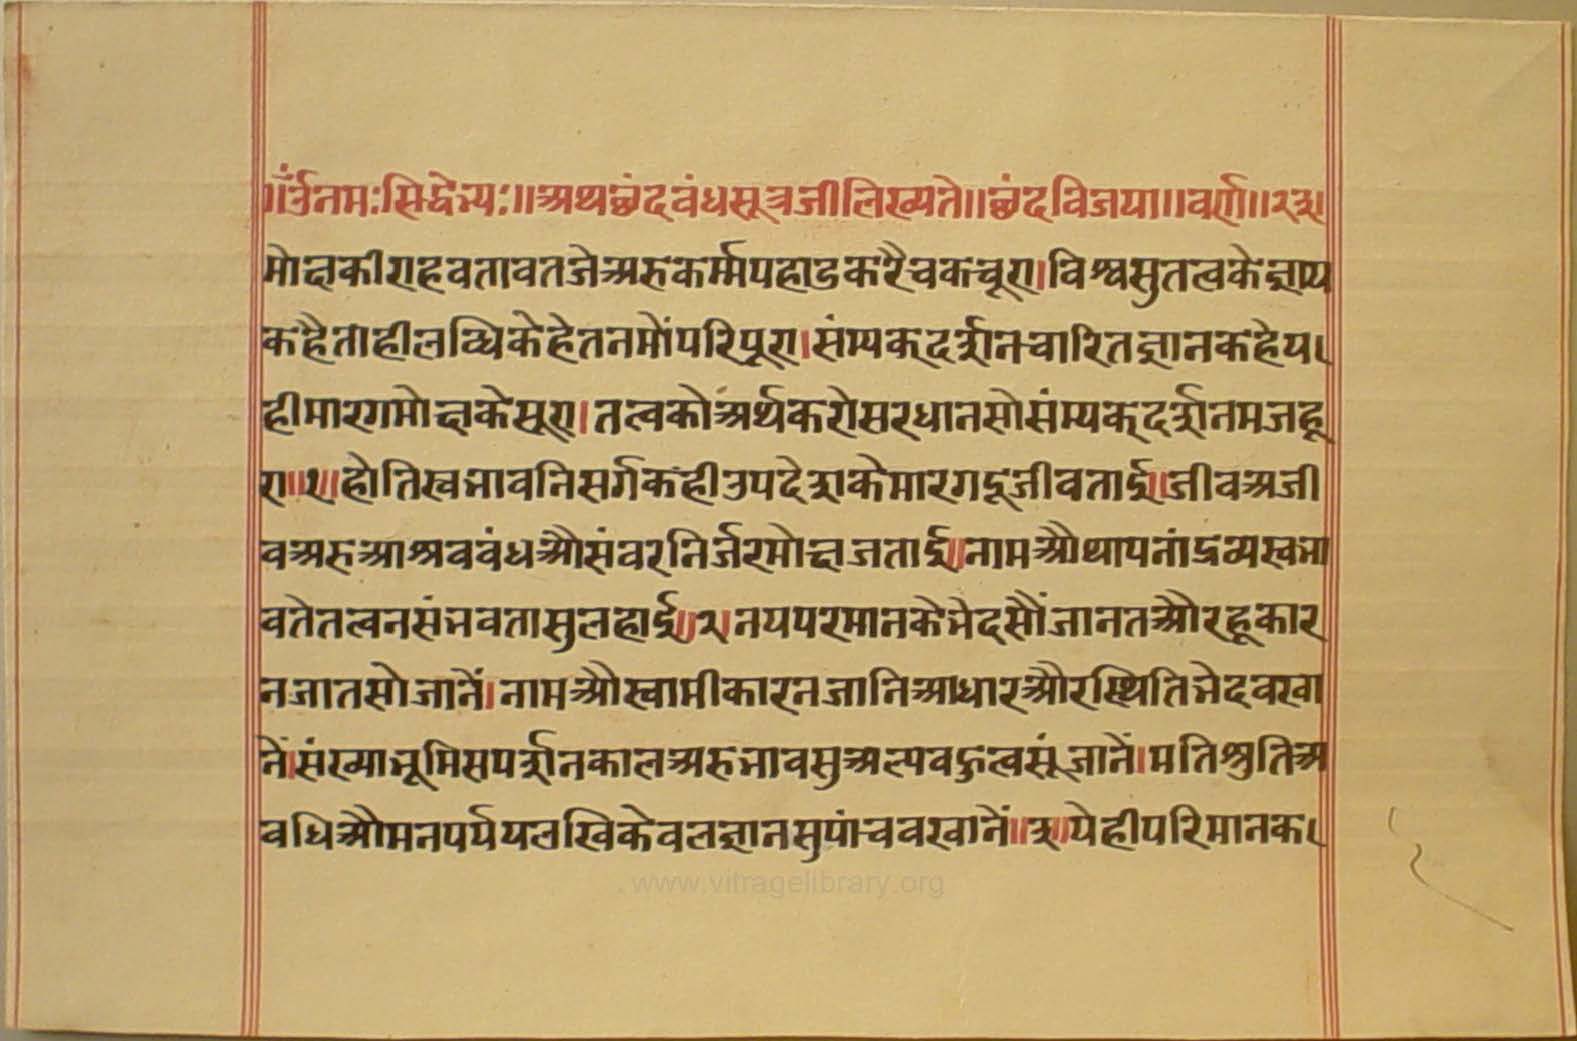 ॥ॐनमःसिद्धेभ्यः॥अथछंदवंधसूत्रजीलिख्यते॥छंदविजया॥वर्ण॥२३।
मोक्षकीराहवतावतजेअरुकर्म्मपहाडकरैचकचूरा।विश्वसुतत्वकेज्ञाय
कहैताहीलव्धिकेहेतनमोंपरिपूरा।संम्यक्दर्शनचारितज्ञानकहेय।
हीमारगमोक्षकेसूरा।तत्वकोअर्थकरोसरधानसोसंम्यक्दर्शनमजहू
रा॥१।होतिस्वभावनिसर्गकंहीउपदेशकेमारगदूजीवताई॥जीवअजी
वअरुआश्रववंधऔसंवरनिर्जरमोक्षजताई॥नामऔथापनांद्रव्यस्वभा
वतेतत्वनसंभवतासुलहाई॥२।नयपरमानकेभेदसौंजानतऔरहूकार
नजातसोजानें।नामऔस्वामीकारनजानिआधारऔरस्थितिभेदवखा
नें।संख्याभूमिसपर्शनकालअरुभावसुअल्पवहुत्वसूंजानें।मतिश्रुतिअ
वधिऔमनपर्ययलखिकेवलज्ञानसुपांचवखानें॥३॥येहीपरिमानक।
www.vitragelibrary.org